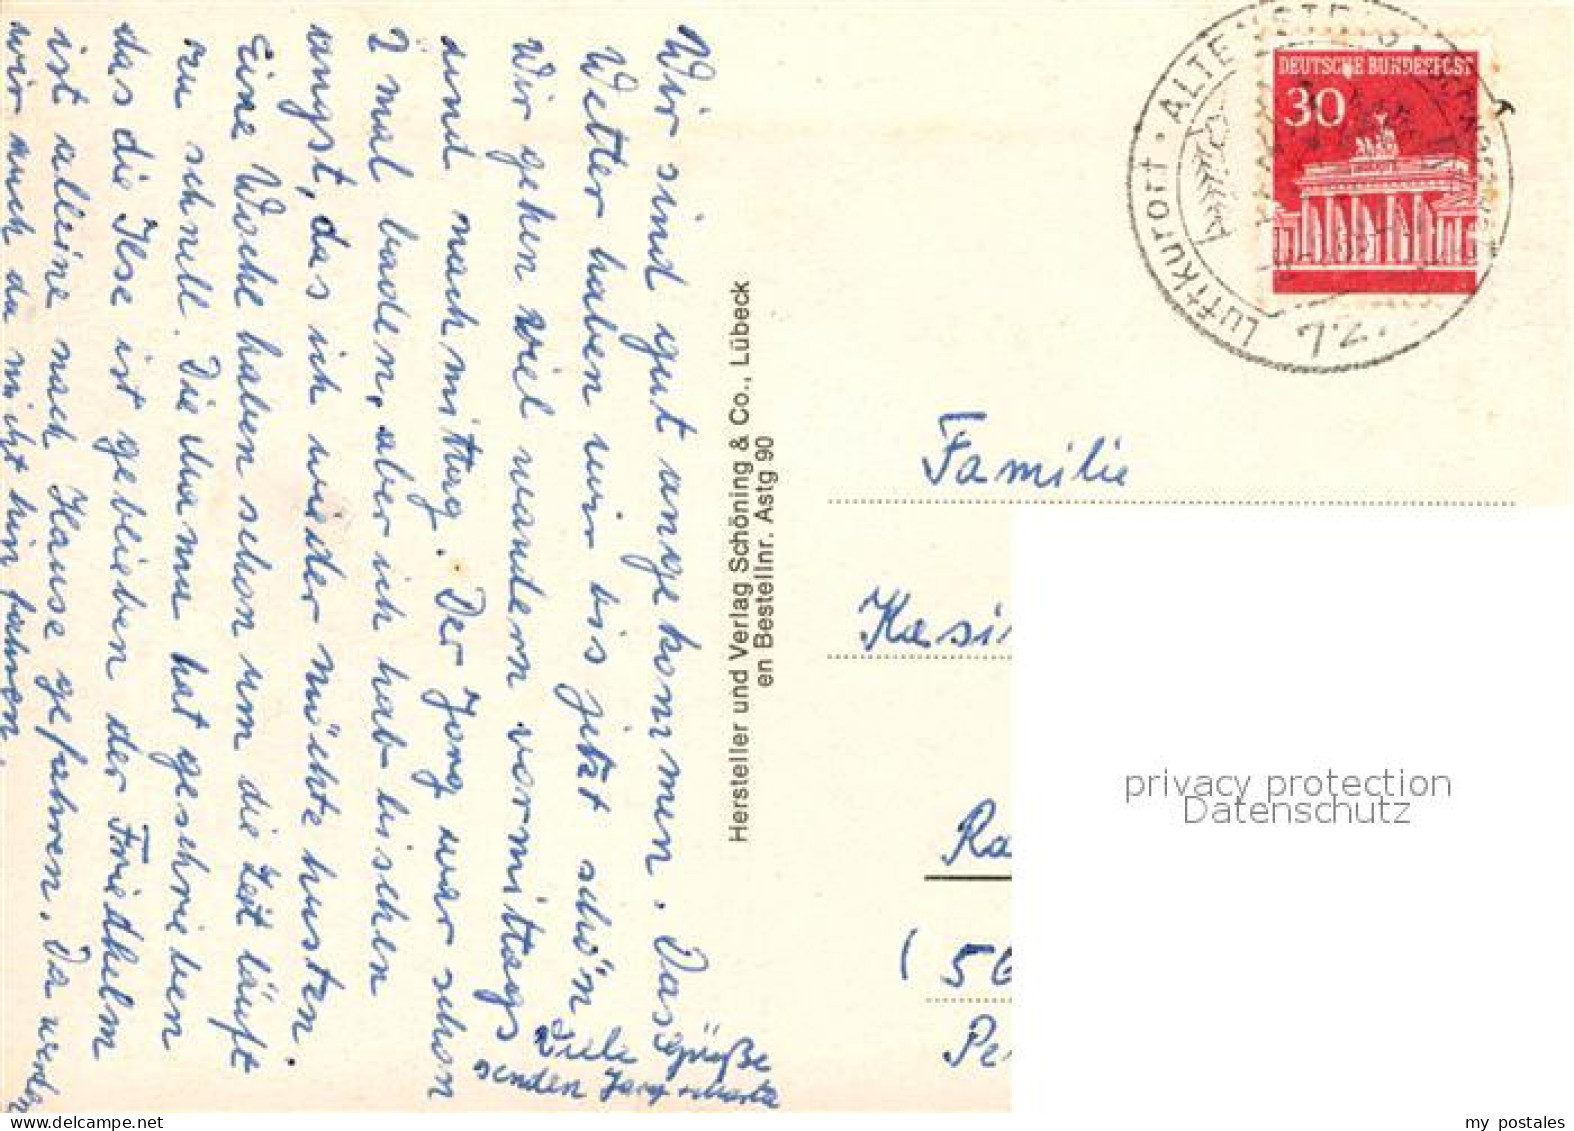 Wir sind gut angekommen. Das
Wetter haben wir bis jetzt schön
Wir gehen viel wandern vormittags
und nachmittag. Der Jörg war schon
2 mal baden, aber ich hab bischen
angst, das ich wieder müchte husten.
Eine Woche haben schon um die Zeit läuft
zu schnell. Die Mama hat geschrieben
das die Ilse ist geblieben der Friedhelm
ist alleine nach Hause gefahren. Da werden
wir auch da nicht hin fahren.
Viele Grüße
senden Jörg + Marta
Hersteller und Verlag Schöning & Co., Lübeck
en Bestellnr. Astg 90
Luftkurort · ALTENSTEIG
DEUTSCHE BUNDESPOST
30
Familie
Kasi
Ra
(56
Pe
privacy protection
Datenschutz
my postales